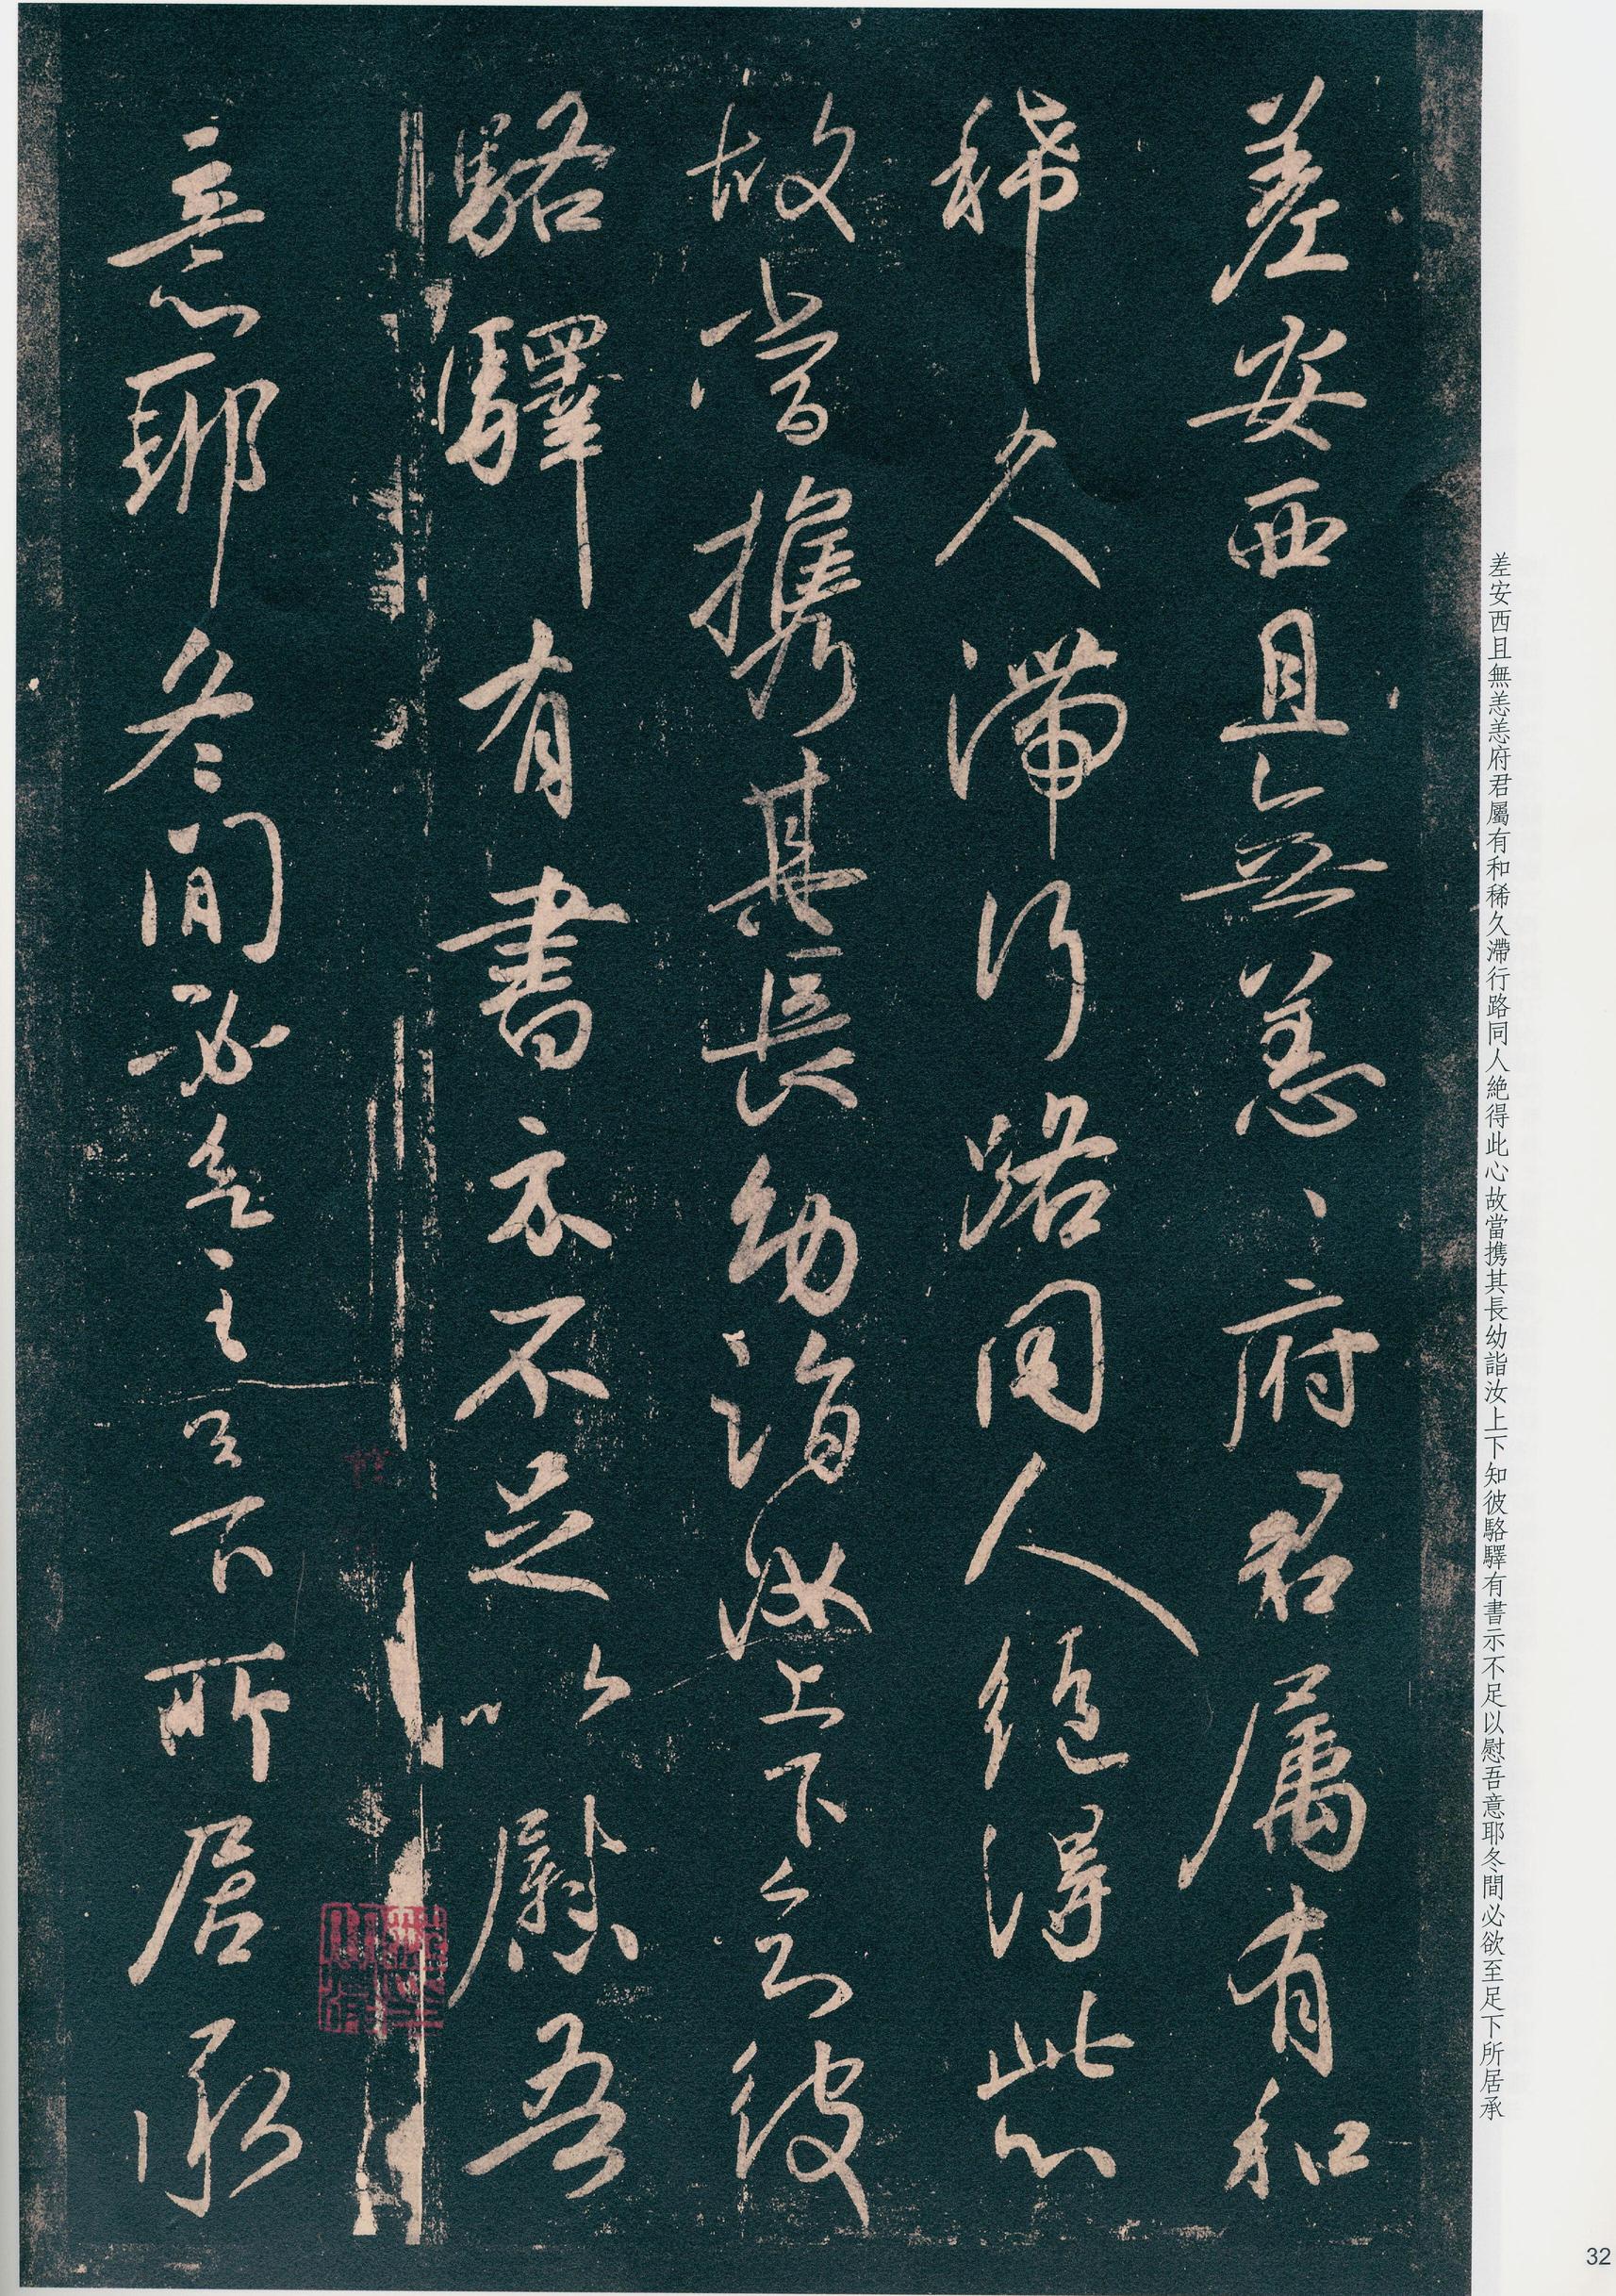 差安西且無恙〻府君屬有和
稀久滯行路同人絶得此心
故當携其長幼詣汝上下知彼
駱驛有書示不足以慰吾
意耶冬間必欲至足下所居承
差安西且無恙恙府君屬有和稀久滯行路同人絶得此心故當携其長幼詣汝上下知彼駱驛有書示不足以慰吾意耶冬間必欲至足下所居承
32